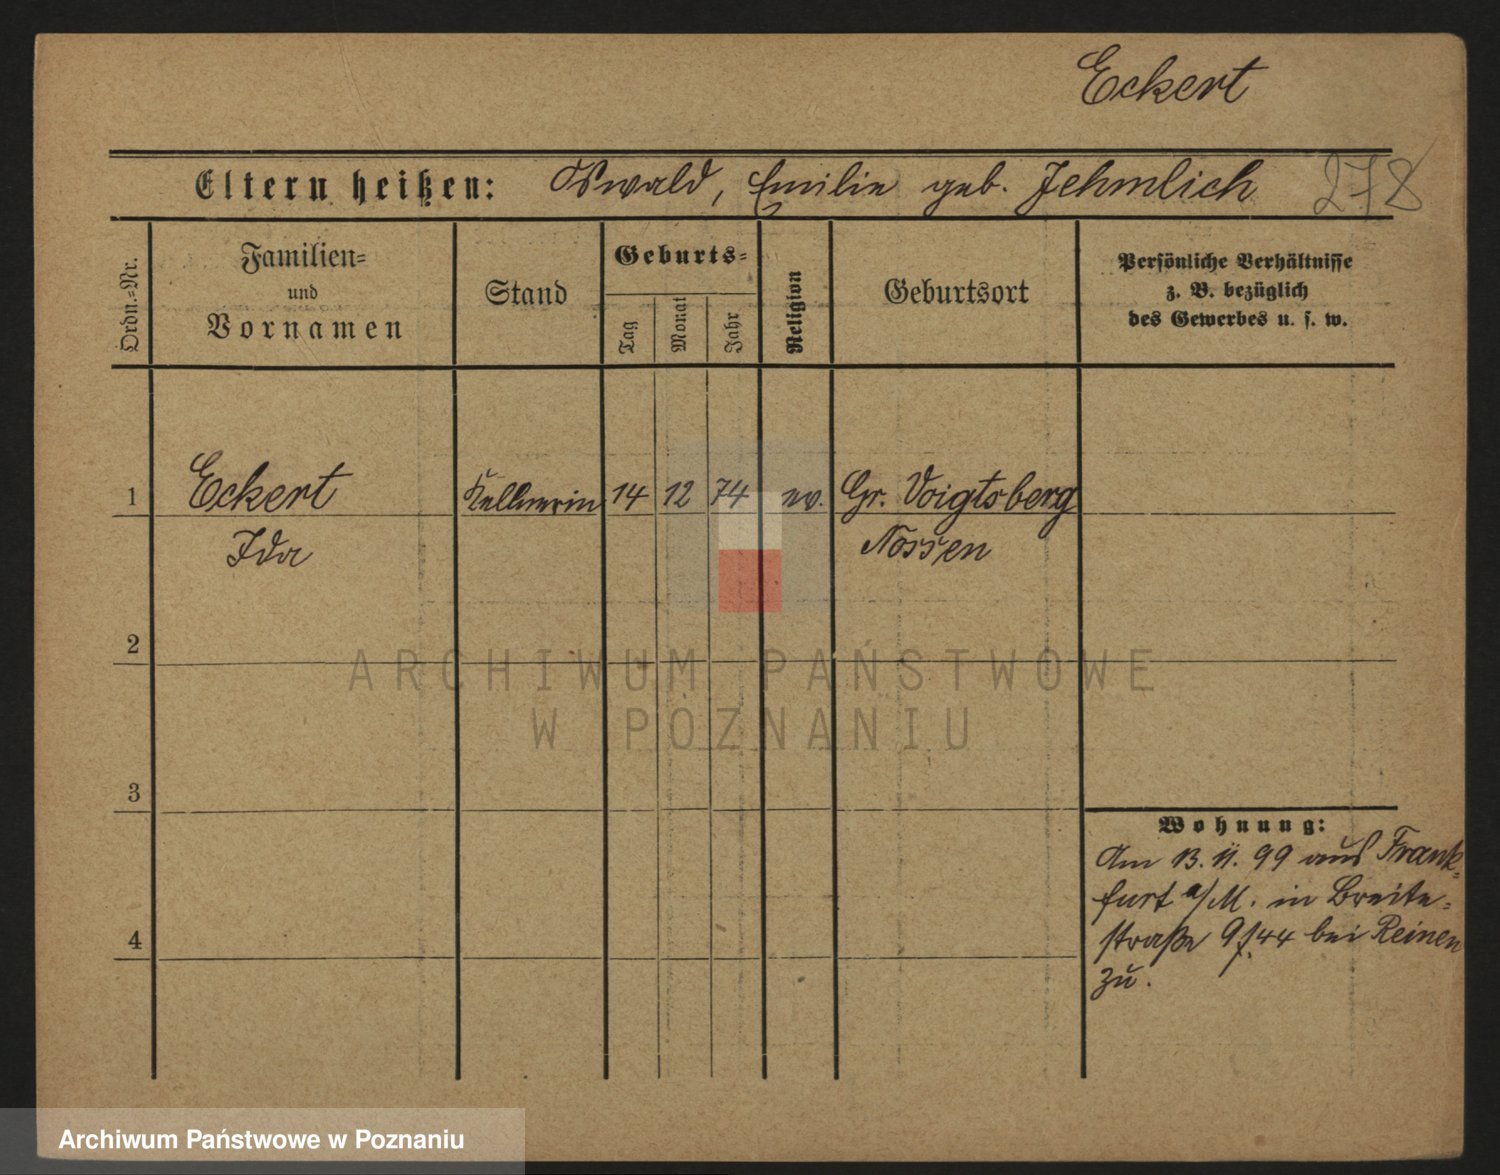 Eckert
Eltern heißen: Oswald, Emilie geb. Jehmlich 278
Ordn.-Nr.
Familien-
und
Vornamen
Stand
Geburts-
Tag
Monat
Jahr
Religion
Geburtsort
Persönliche Verhältnisse
z. B. bezüglich
des Gewerbes u. s. w.
1 Eckert Kellnerin 14 12 74 ev. Gr. Voigtsberg
Ida Nossen
2
3
4
Wohnung:
Am 13. 11. 99 aus Frank-
furt a/M. in Breite-
straße bei Reinen
zu.
ARCHIWUM PAŃSTWOWE
W POZNANIU
Archiwum Państwowe w Poznaniu